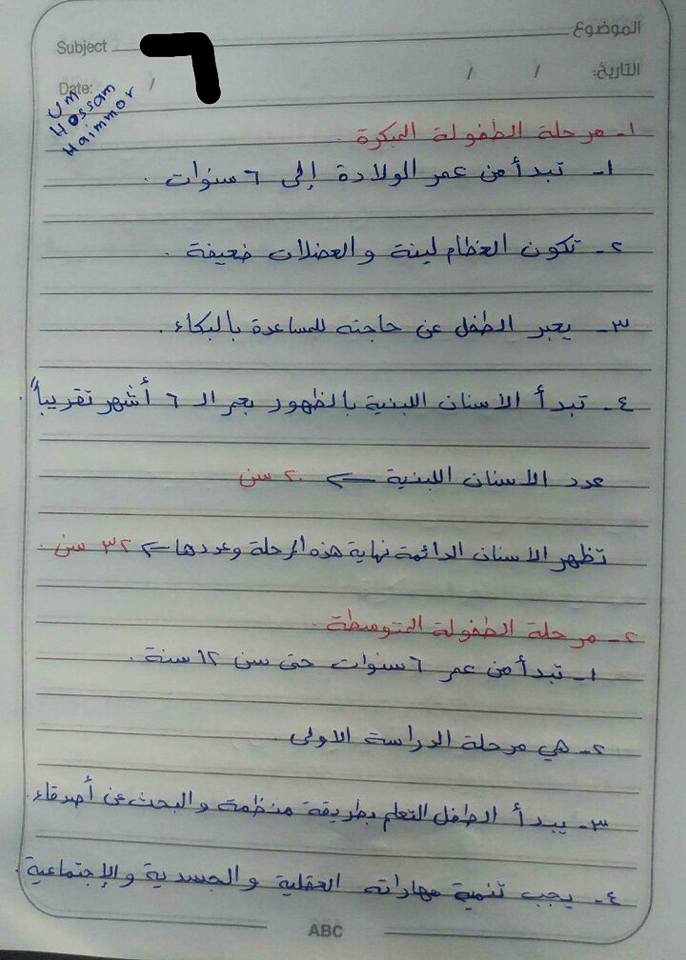 الموضوع
Subject
التاريخ: / /
Date: /
Um
Hossam
Haimmor
١- مرحلة الطفولة المبكرة.
١- تبدأ من عمر الولادة إلى ٦ سنوات.
٢- تكون العظام لينة والعضلات ضعيفة.
٣- يعبر الطفل عن حاجته للمساعدة بالبكاء.
٤- تبدأ الاسنان اللبنية بالظهور بعمر الـ ٦ أشهر تقريباً.
عدد الاسنان اللبنية ← ٢٠ سن
تظهر الاسنان الدائمة نهاية هذه المرحلة وعددها ← ٣٢ سن.
٢- مرحلة الطفولة المتوسطة.
١- تبدأ من عمر ٦ سنوات حتى سن ١٢ سنة.
٢- هي مرحلة الدراسة الاولى.
٣- يبدأ الطفل التعلم بطريقة منظمة والبحث عن أصدقاء.
٤- يجب تنمية مهاراته العقلية والجسدية والإجتماعية.
ABC